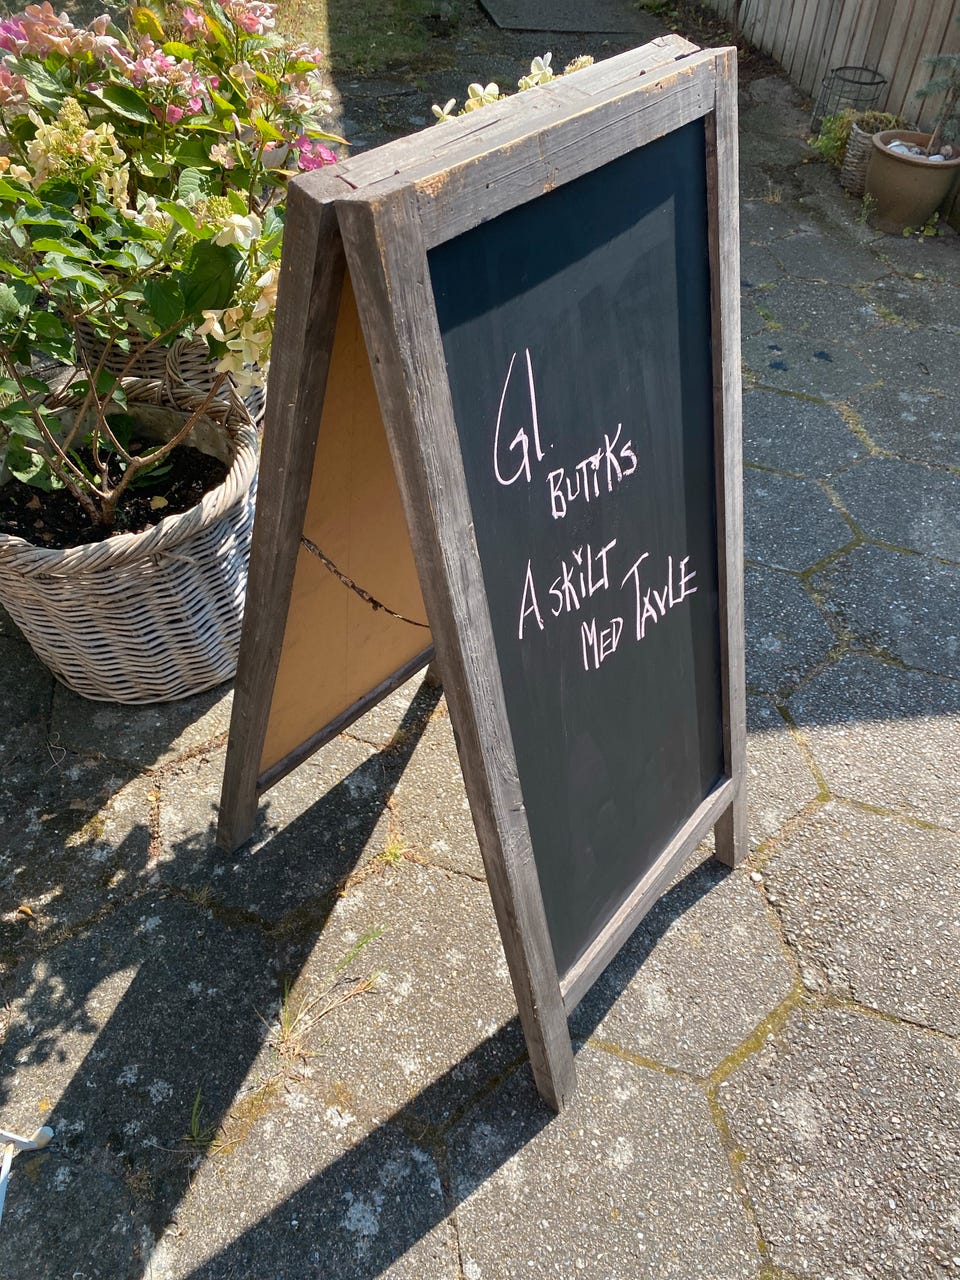 Gl.
BUTIKS
A SKILT
MED TAVLE